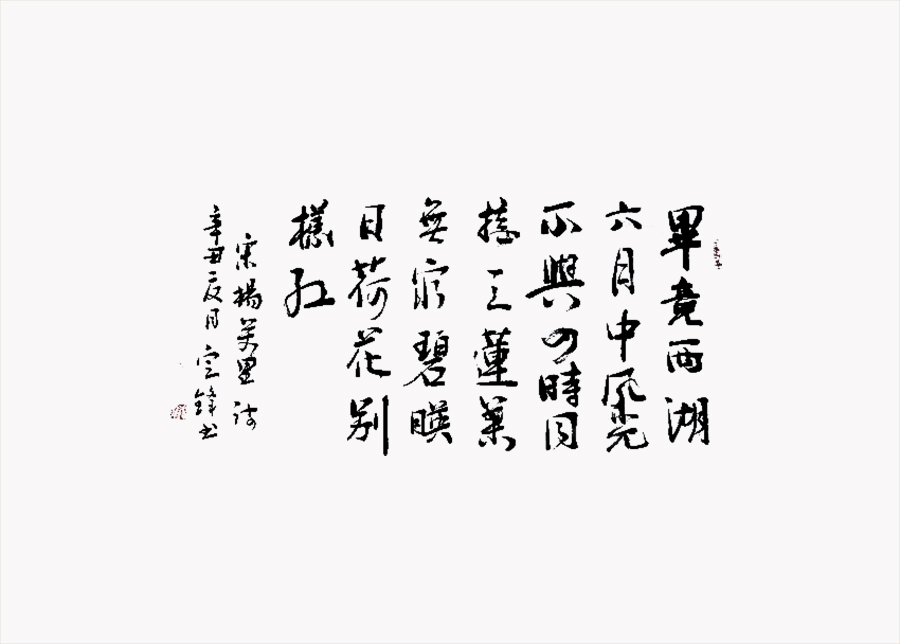 畢竟西湖
六月中風光
不與四時同
接天蓮葉
無窮碧映
日荷花別
樣紅
宋楊萬里詩
辛丑夏月 鋒書